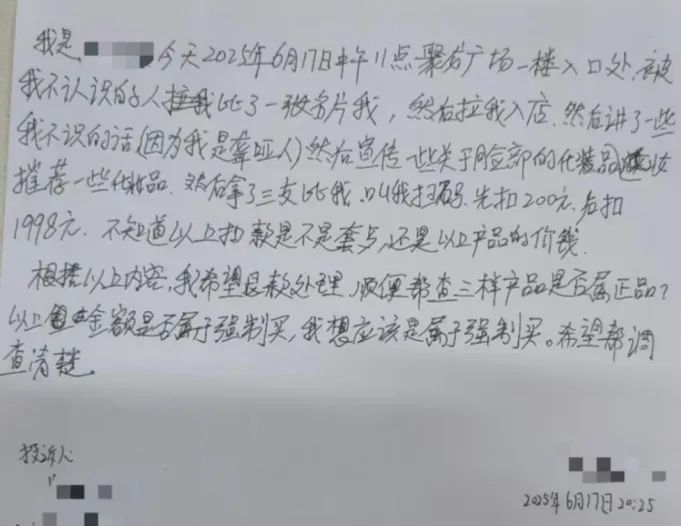 我是 今天2025年6月17日中午11点聚龙广场一楼入口处,被
我不认识的人 比了一张名片我,然后拉我入店.然后讲了一些
我不识的话(因为我是聋哑人)然后宣传一些关于脸部的化装品
推荐一些化妆品.然后拿了三支比我.叫我扫码.先扣200元.后扣
1998元.不知道以上扣款是不是套与,还是以上产品的价钱.
根据以上内容,我希望退款处理.顺便帮查三样产品是否属正品?
以上 金额是否属于强制买,我想应该是属于强制买。希望帮调
查清楚.
投诉人
2025年6月17日20:25